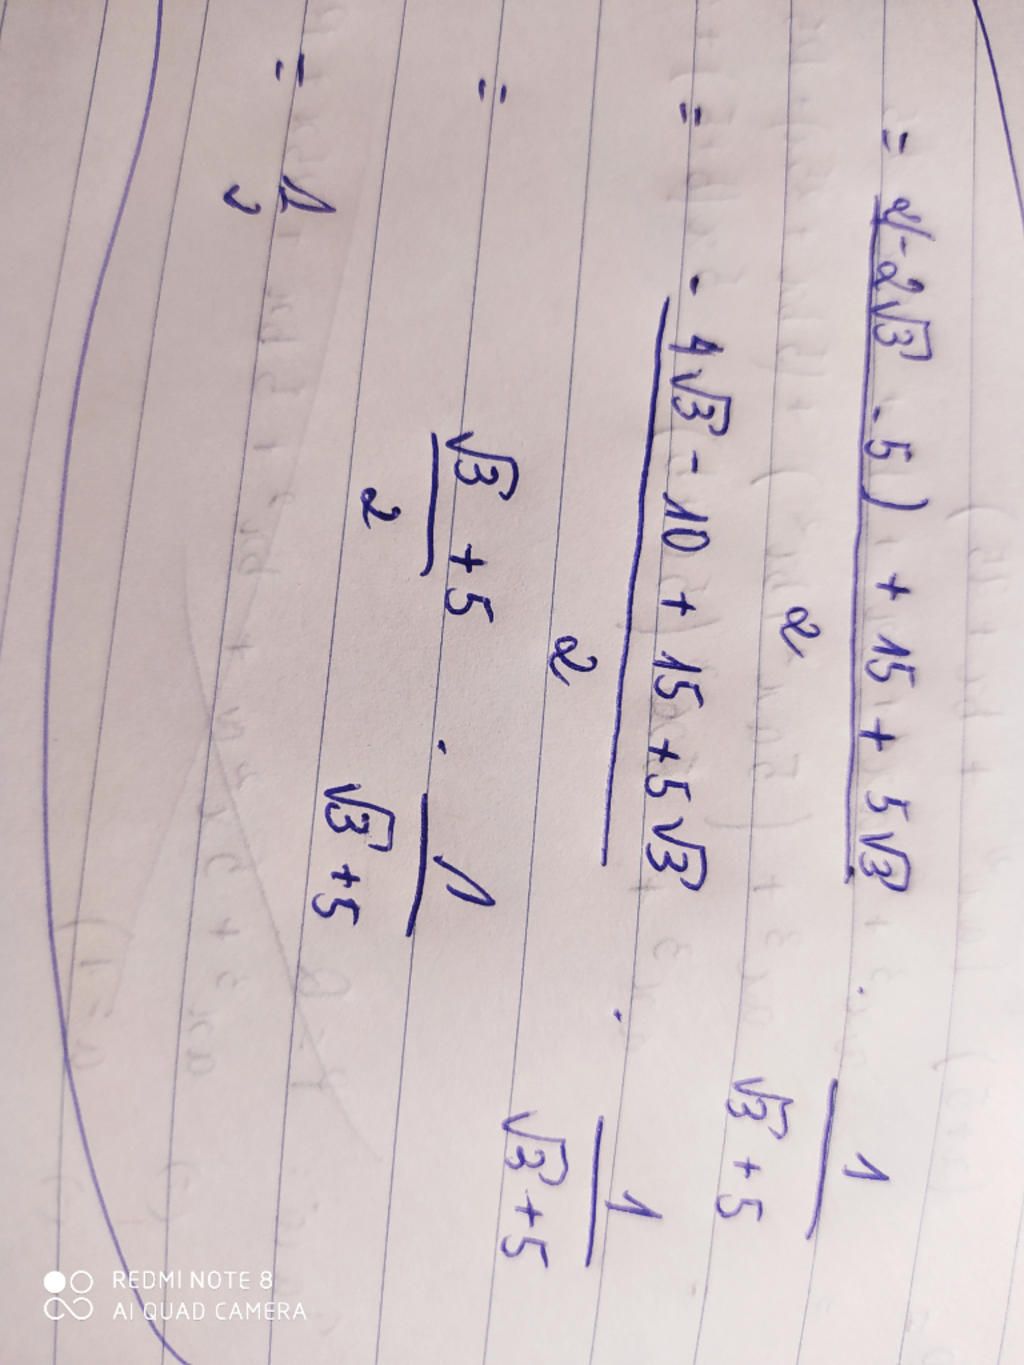 = 2(-2√3 - 5) + 15 + 5√3 / 2 · 1 / √3 + 5
= - 4√3 - 10 + 15 + 5√3 / 2 · 1 / √3 + 5
= √3 + 5 / 2 · 1 / √3 + 5
= 1 / 2
REDMI NOTE 8
AI QUAD CAMERA